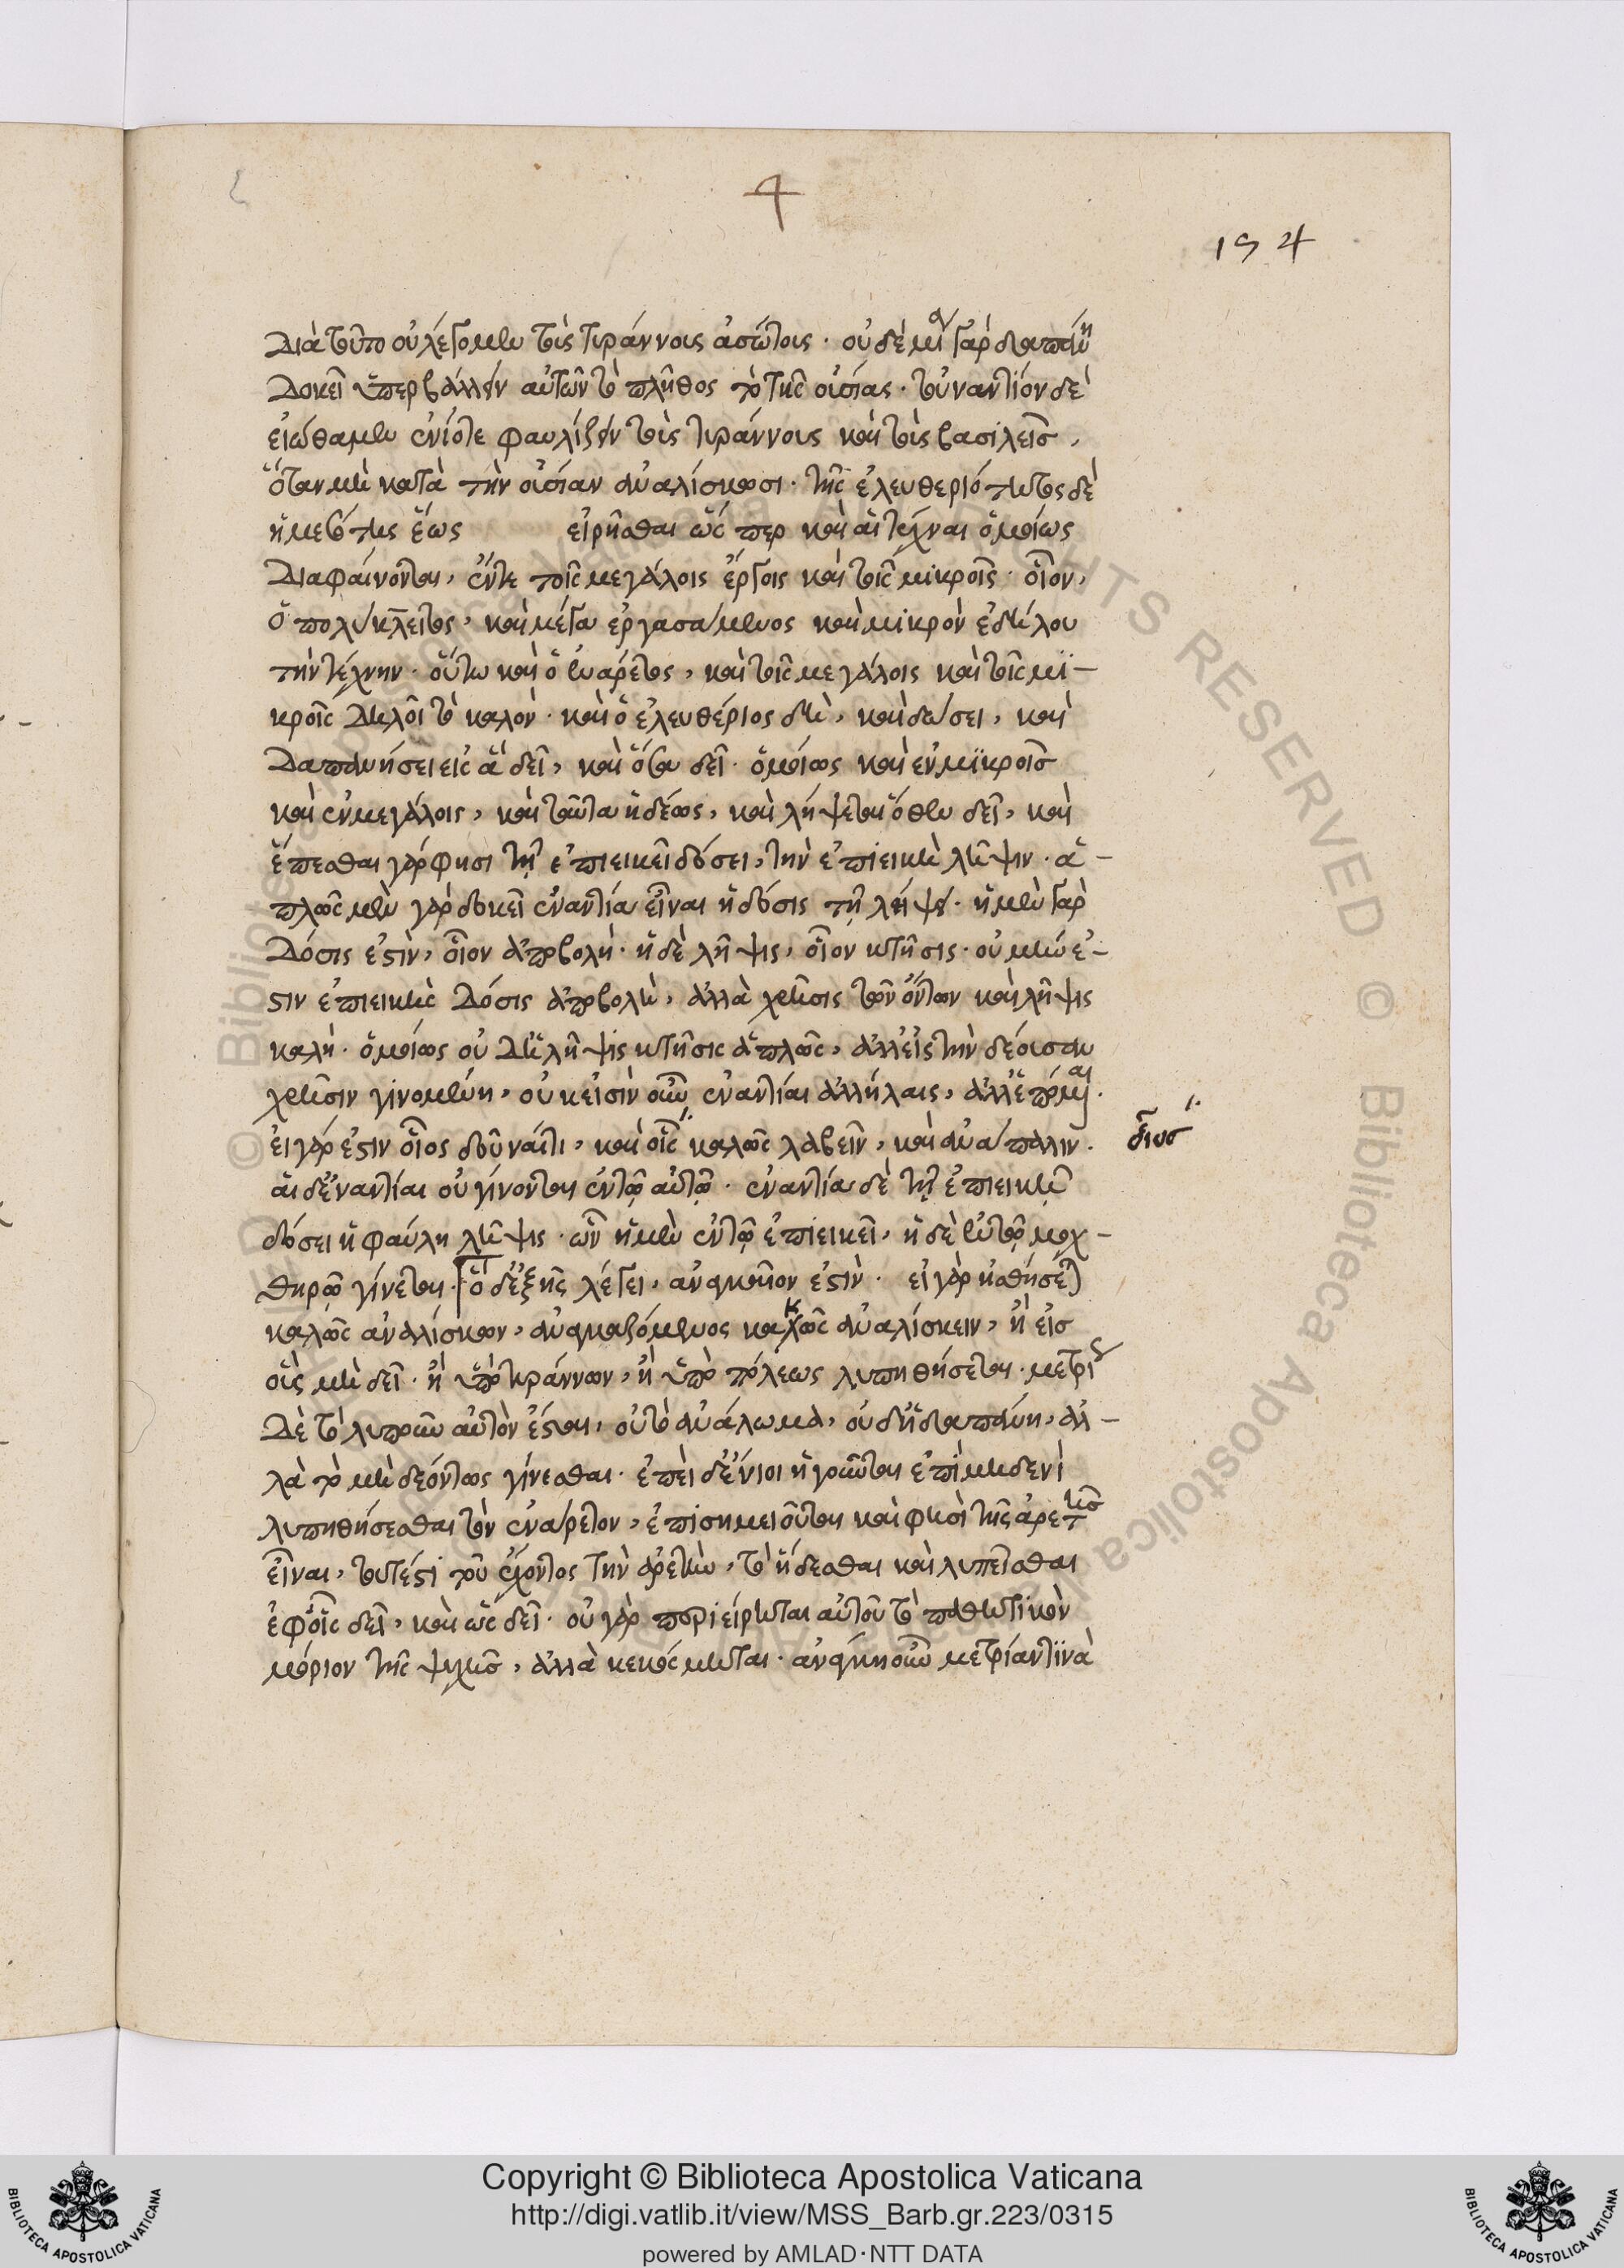 154
Διὰ τοῦτο οὐ λέγομεν τοὺς τυράννους ἀσώτους · οὐδεμία γὰρ δαπάνη
δοκεῖ ὑπερβάλλειν αὐτῶν τὸ πλῆθος τὸ τῆς οὐσίας · τοὐναντίον δὲ
εἰώθαμεν ἐνίοτε φαυλίζειν τοὺς τυράννους καὶ τοὺς βασιλεῖς,
ὅταν μὴ κατὰ τὴν οὐσίαν ἀναλίσκωσι · τῆς ἐλευθεριότητος δὲ
ἡ μεσότης ἕως εἰρῆσθαι ὥσπερ καὶ αἱ τέχναι ὁμοίως
διαφαίνονται, ἔν τε τοῖς μεγάλοις ἔργοις καὶ τοῖς μικροῖς · οἷον,
ὁ πολύκλειτος, καὶ μέγα ἐργασάμενος καὶ μικρὸν ἐδήλου
τὴν τέχνην · οὕτω καὶ ὁ ἐνάρετος, καὶ τοῖς μεγάλοις καὶ τοῖς μι-
κροῖς δηλοῖ τὸ καλόν · καὶ ὁ ἐλευθέριος δὴ, καὶ δώσει, καὶ
δαπανήσει εἰς ἃ δεῖ, καὶ ὅσα δεῖ · ὁμοίως καὶ ἐν μικροῖς
καὶ ἐν μεγάλοις, καὶ ταῦτα ἡδέως, καὶ λήψεται ὅθεν δεῖ, καὶ
ἕπεσθαι γάρ φησι τῇ ἐπιεικεῖ δόσει, τὴν ἐπιεικῆ λῆψιν · ἁ-
πλῶς μὲν γὰρ δοκεῖ ἐναντία εἶναι ἡ δόσις τῇ λήψει · ἡ μὲν γὰρ
δόσις ἐστὶν, οἷον ἀποβολή · ἡ δὲ λῆψις, οἷον κτῆσις · οὐ μὴν ἐ-
στιν ἐπιεικὴς δόσις ἀποβολὴ, ἀλλὰ χρῆσις τῶν ὄντων καὶ λῆψις
καλή · ὁμοίως οὐδ' ἡ λῆψις κτῆσις ἁπλῶς, ἀλλ' εἰς τὴν δέουσαν
χρῆσιν γινομένη, οὐκ εἰσὶν οὖν ἐναντίαι ἀλλήλαις, ἀλλ' ἕπονται ·
εἰ γάρ ἐστιν οἷος δοῦναί τι, καὶ οἷς καλῶς λαβεῖν, καὶ ἀνάπαλιν ·
οἷος
αἱ δ' ἐναντίαι οὐ γίνονται ἐν τῷ αὐτῷ · ἐναντία δὲ τῇ ἐπιεικῆ
δόσει ἡ φαύλη λῆψις · ὧν ἡ μὲν ἐν τῷ ἐπιεικεῖ, ἡ δὲ ἐν τῷ μοχ-
θηρῷ γίνεται · ὃ δ' ἑξῆς λέγει, ἀναγκαῖον ἐστὶν · εἰ γὰρ ἡσθήσεται
καλῶς ἀναλίσκων, ἀναγκαζόμενος κακῶς ἀναλίσκειν, ἢ εἰς
οἷς μὴ δεῖ · ἢ ὑπὸ τυράννων, ἢ ὑπὸ πόλεως λυπηθήσεται · μετρί
δὲ τὸ λυποῦν αὐτὸν ἔσται, οὐ τὸ ἀνάλωμα, οὐδ' ἡ δαπάνη, ἀλ-
λὰ τὸ μὴ δεόντως γίνεσθαι · ἐπεὶ δ' ἔνιοι ἡγοῦνται ἐπὶ μηδενὶ
λυπηθήσεσθαι τὸν ἐνάρετον, ἐπισημειοῦται καὶ φησὶ τῆς ἀρετῆς
εἶναι, τουτέστι τοῦ ἔχοντος τὴν ἀρετὴν, τὸ ἥδεσθαι καὶ λυπεῖσθαι
ἐφ' οἷς δεῖ, καὶ ὡς δεῖ · οὐ γὰρ περιείρηται αὐτοῦ τὸ παθητικὸν
μόριον τῆς ψυχῆς, ἀλλὰ κεκόσμηται · ἀνάγκη οὖν μετρίαν τινὰ
Copyright © Biblioteca Apostolica Vaticana
http://digi.vatlib.it/view/MSS_Barb.gr.223/0315
powered by AMLAD·NTT DATA
BIBLIOTECA APOSTOLICA VATICANA
BIBLIOTECA APOSTOLICA VATICANA